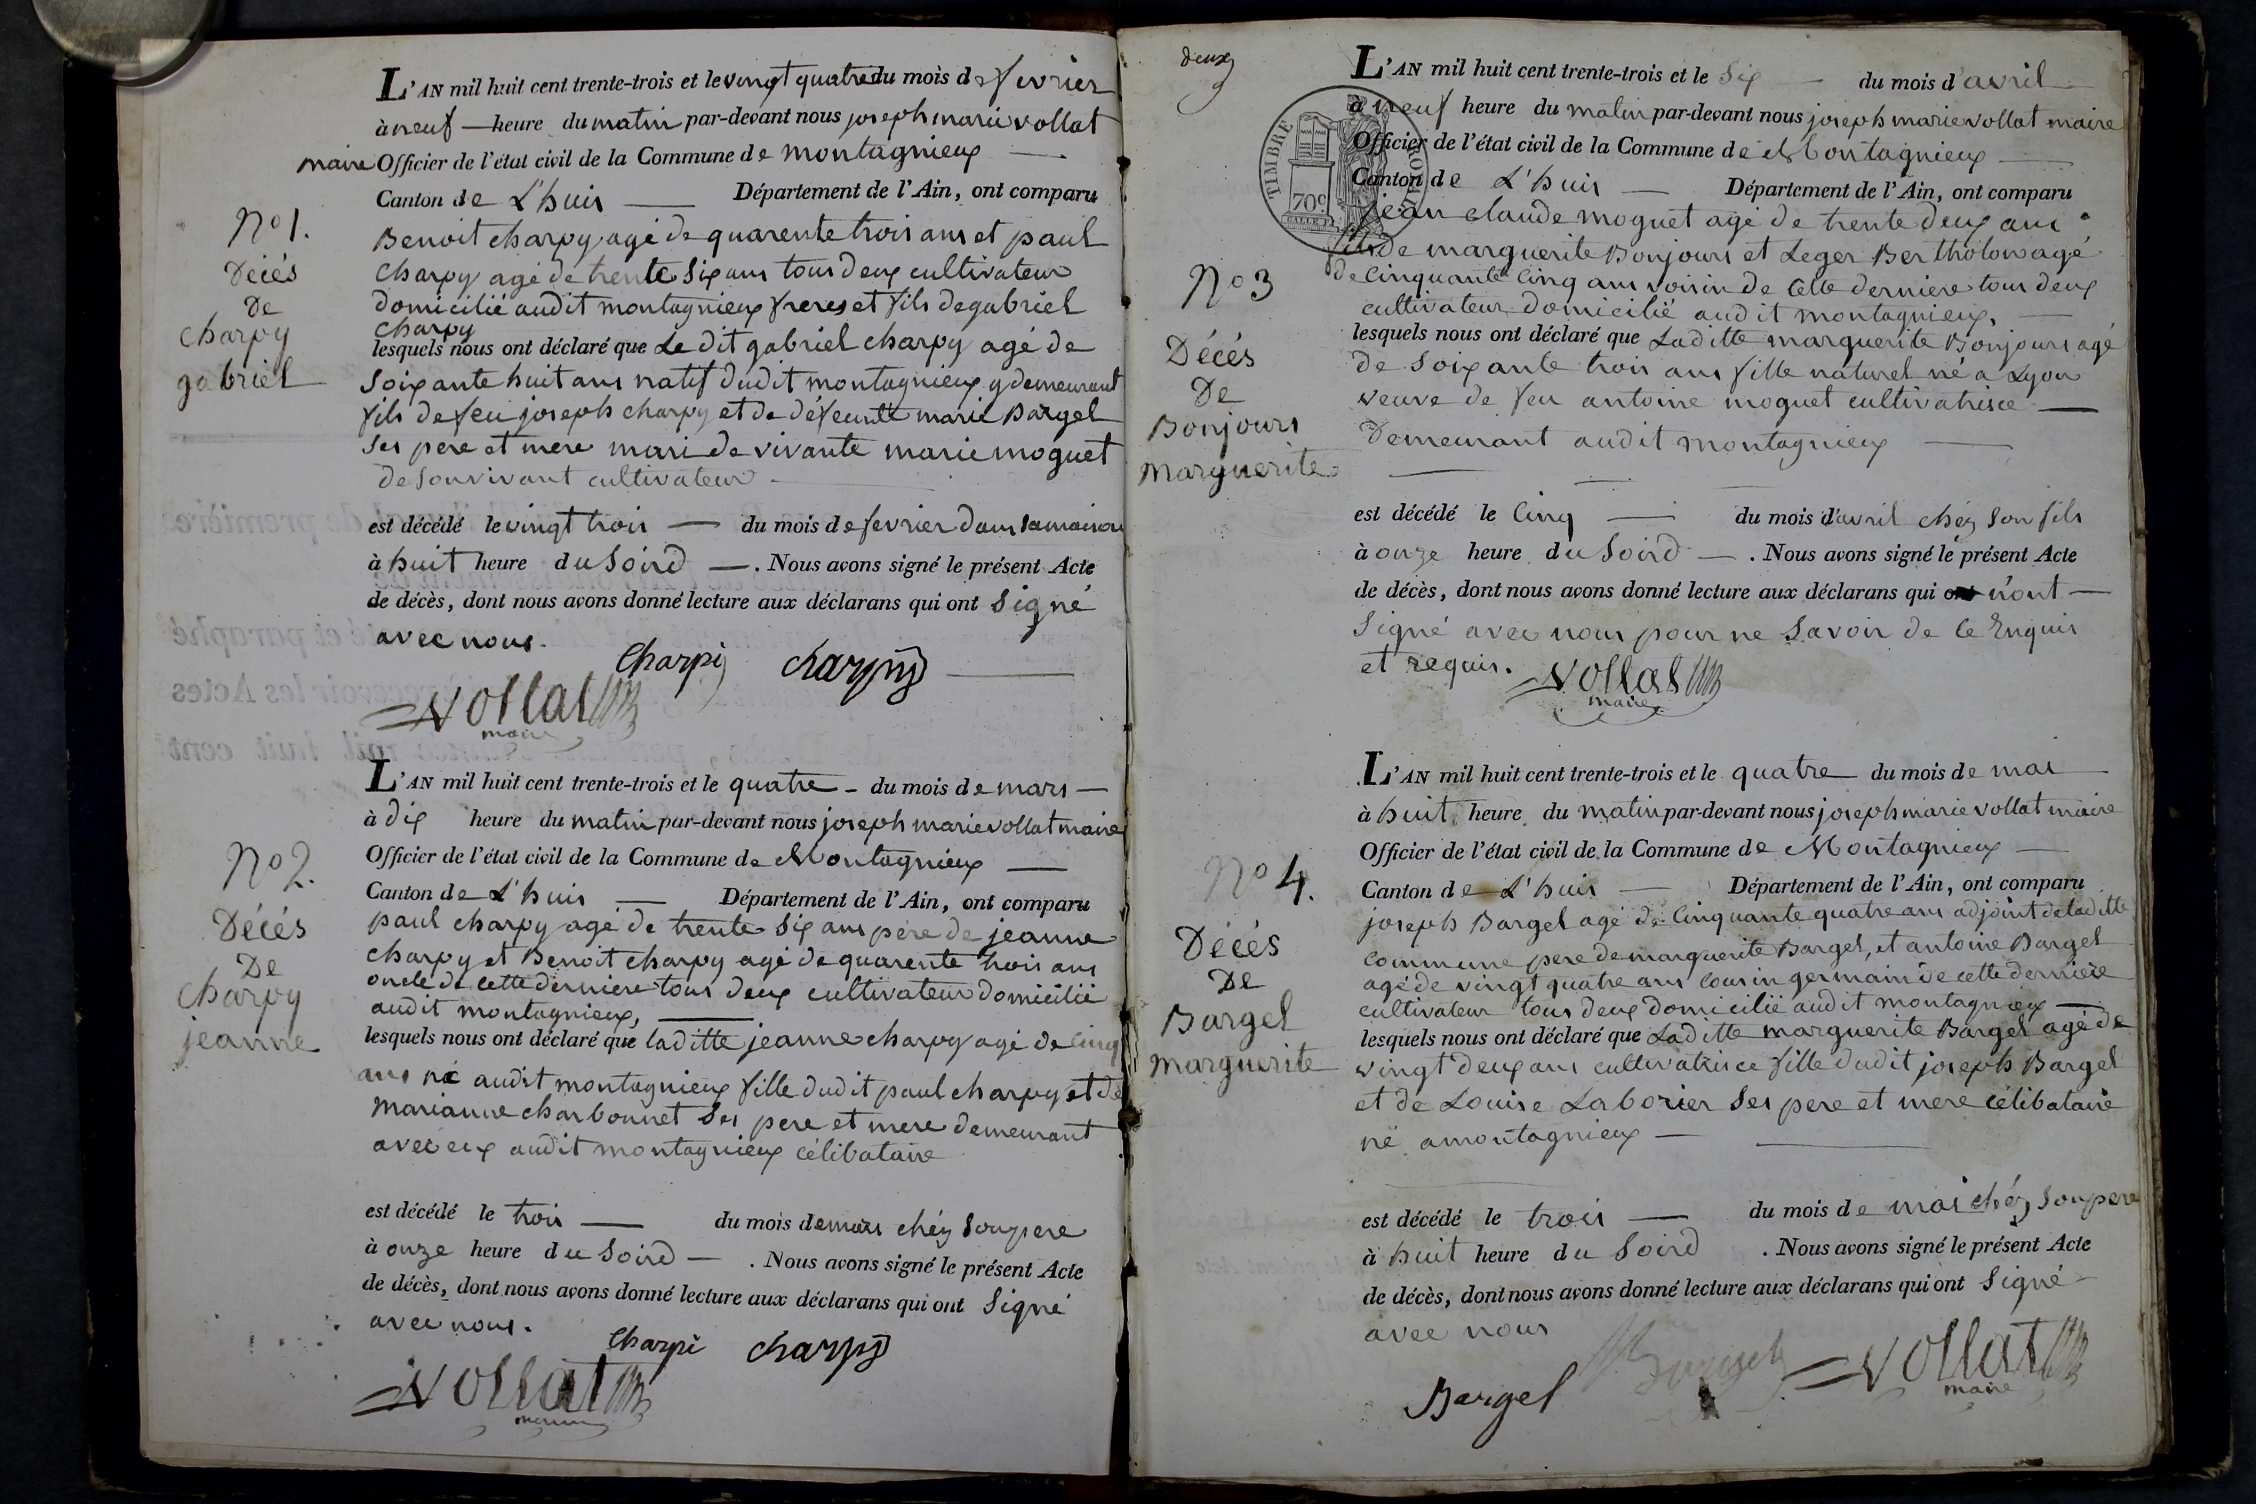 L'AN mil huit cent trente-trois et le vingt quatre du mois de fevrier
à neuf heure du matin par-devant nous joseph marie vollat
maire Officier de l'état civil de la Commune de montagnieux
Canton de L'huis Département de l'Ain, ont comparu
N° 1.
Décés
De
charpy
gabriel
Benoit charpy agé de quarente trois ans et paul
charpy agé de trente six ans tous deux cultivateur
domicilié audit montagnieux freres et fils de gabriel
charpy
lesquels nous ont déclaré que Le dit gabriel charpy agé de
soixante huit ans natif dudit montagnieux y demeurant
fils de feu joseph charpy et de défeunte marie Bargel
ses pere et mere mari de vivante marie moguet
de sonvivant cultivateur
est décédé le vingt trois du mois de fevrier dans samaison
à huit heure du soird. Nous avons signé le présent Acte
de décès, dont nous avons donné lecture aux déclarans qui ont signé
avec nous.
Charpi charpy
vollat
maire
L'AN mil huit cent trente-trois et le quatre du mois de mars
à dix heure du matin par-devant nous joseph marie vollat maire
Officier de l'état civil de la Commune de Montagnieux
Canton de L'huis Département de l'Ain, ont comparu
N° 2.
Décés
De
charpy
jeanne
paul charpy agé de trente six ans pere de jeanne
charpy et Benoit charpy agé de quarente trois ans
oncle de cette derniere tous deux cultivateur domicilié
audit montagnieux,
lesquels nous ont déclaré que laditte jeanne charpy agé de cinq
ans né audit montagnieux fille dudit paul charpy et de
marianne charbonnet ses pere et mere demeurant
avec eux audit montagnieux célibataire
est décédé le trois du mois de mars chéz son pere
à onze heure du soird. Nous avons signé le présent Acte
de décès, dont nous avons donné lecture aux déclarans qui ont signé
avec nous.
Charpi charpy
vollat
maire
deux
L'AN mil huit cent trente-trois et le six du mois d'avril
à neuf heure du matin par-devant nous joseph marie vollat maire
Officier de l'état civil de la Commune de Montagnieux
Canton de L'huis Département de l'Ain, ont comparu
TIMBRE ROYAL
70c
N° 3
Décés
De
Bonjours
marguerite
jean claude moguet agé de trente deux ans
fils de marguerite Bonjours et Leger Bertholon agé
de cinquante cinq ans voisin de cette derniere tous deux
cultivateur domicilié audit montagnieux,
lesquels nous ont déclaré que Laditte marguerite Bonjours agé
de soixante trois ans fille naturel né a Lyon
veuve de feu antoine moguet cultivatrisce
Demeurant audit montagnieux
est décédé le cinq du mois d'avril chéz son fils
à onze heure du soird. Nous avons signé le présent Acte
de décès, dont nous avons donné lecture aux déclarans qui ont n'ont
signé avec nous pour ne savoir de ce Enquis
et requis.
vollat
maire
L'AN mil huit cent trente-trois et le quatre du mois de mai
à huit heure du matin par-devant nous joseph marie vollat maire
Officier de l'état civil de la Commune de Montagnieux
Canton de L'huis Département de l'Ain, ont comparu
N° 4.
Décés
De
Bargel
marguerite
joseph Bargel agé de cinquante quatre ans adjoint de laditte
commune pere de marguerite Bargel, et antoine Bargel
agé de vingt quatre ans cousin germain de cette derniere
cultivateur tous deux domicilié audit montagnieux
lesquels nous ont déclaré que Laditte marguerite Bargel agé de
vingt deux ans cultivatrisce fille dudit joseph Bargel
et de Louise Laborier ses pere et mere célibataire
né a montagnieux
est décédé le trois du mois de mai chéz son pere
à huit heure du soird. Nous avons signé le présent Acte
de décès, dont nous avons donné lecture aux déclarans qui ont signé
avec nous
Bargel vollat
maire